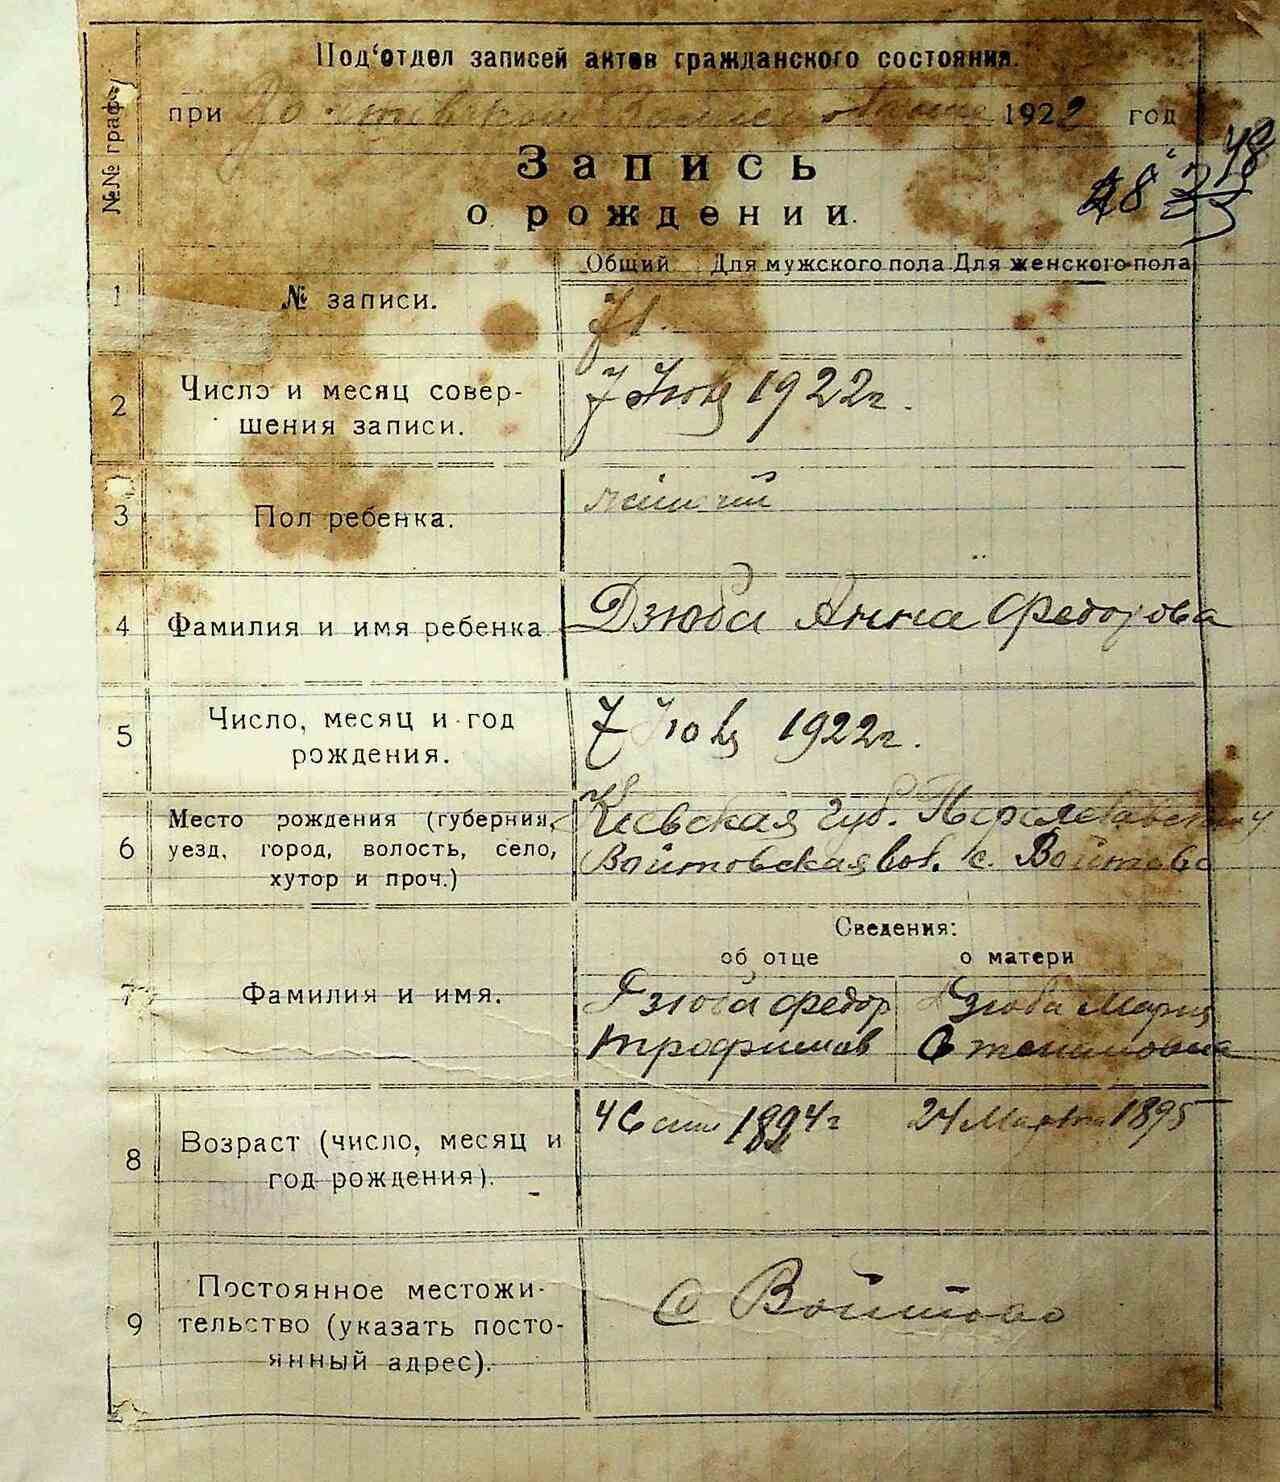 Под'отдел записей актов гражданского состояния.
при Войтовском 1922 год
№№ граф
Запись
о рождении.
48
28 33
Общий Для мужского пола Для женского пола
1 № записи. 71.
2 Число и месяц совер-
шения записи.
7 Июня 1922 г.
3 Пол ребенка.
4 Фамилия и имя ребенка Дзюба Анна Федорова
5 Число, месяц и год
рождения.
7 Июня 1922 г.
6 Место рождения (губерния,
уезд, город, волость, село,
хутор и проч.)
Киевская губ. Переяславский у
Войтовская вол. с. Войтово
Сведения:
об отце о матери
7 Фамилия и имя.
Дзюба Федор Дзюба Мария
Трофимов Степановна
8 Возраст (число, месяц и
год рождения).
1894 г 24 Марта 1895
9 Постоянное местожи-
тельство (указать посто-
янный адрес).
С Войтово